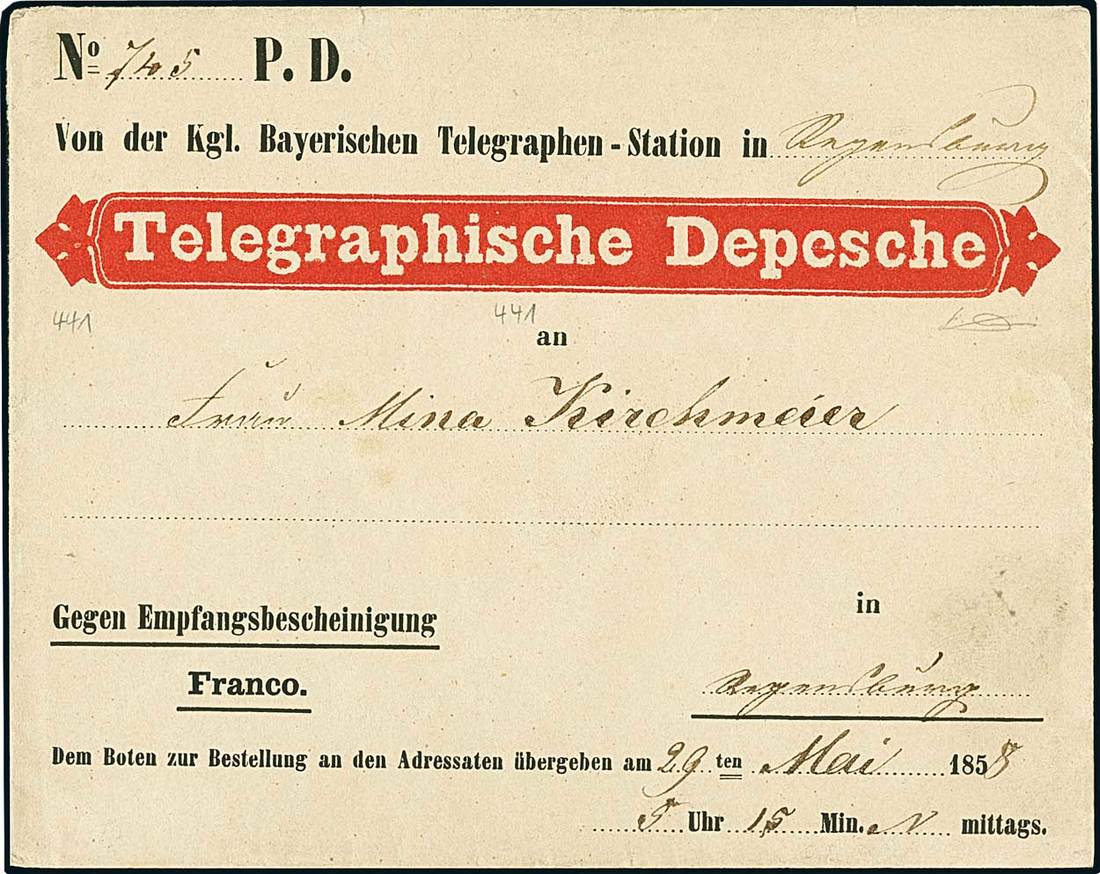 No 745 P. D.
Von der Kgl. Bayerischen Telegraphen-Station in Regensburg
Telegraphische Depesche
441 441
an
Frau Mina Kirchmeier
Gegen Empfangsbescheinigung
in
Franco.
Regensburg
Dem Boten zur Bestellung an den Adressaten übergeben am 29 ten Mai 1858
5 Uhr 15 Min. N mittags.